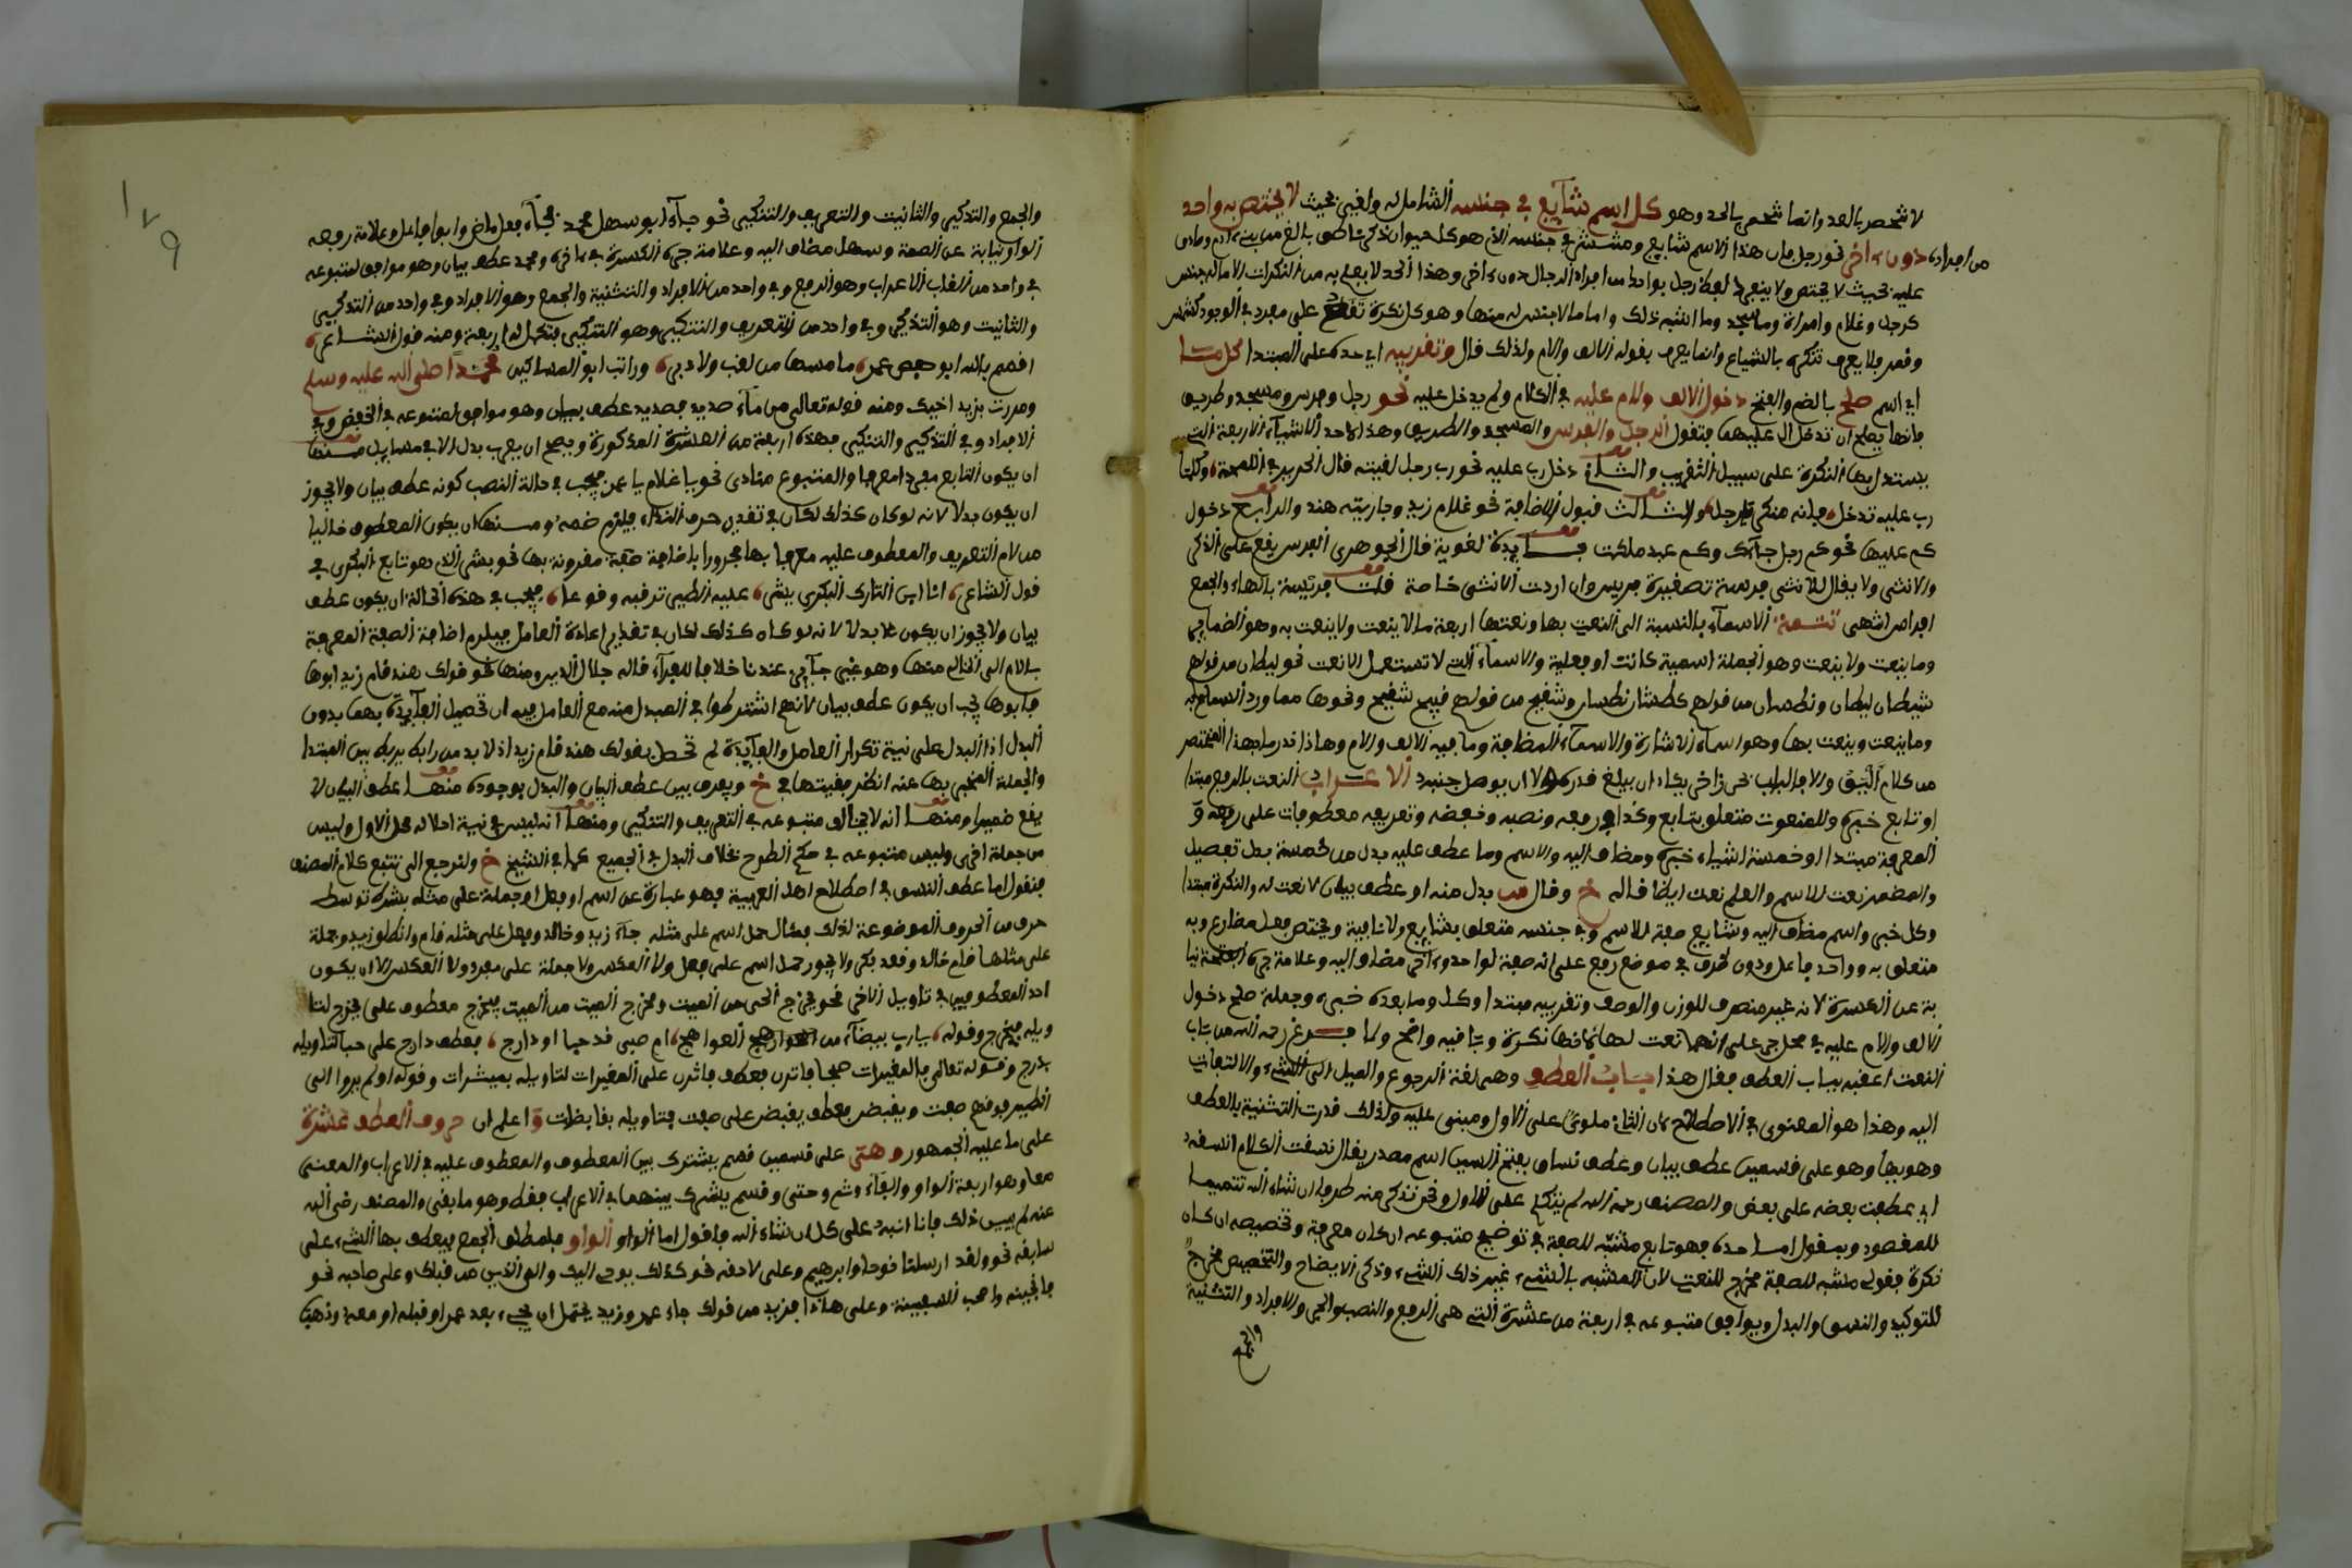 لا شحصر بالعد وانما شحصر بالحد وهو كل اسم شايع في جنسه الشامل له ولغيره بحيث لا يختص به واحد
من افراده دون اخر نحو رجل فان هذا الاسم شايع ومشترك في جنسه الذي هو كل حيوان ذكر ناطق بالغ من بني ادم وصادق
عليه بحيث لا يختص ولا ينفرد لفظ رجل بواحد من افراد الرجال دون اخر وهذا الحد لا يعلم به من النكرات الا ما له جنس
كرجل وغلام وامراة ومسجد وما اشبه ذلك واما ما لا جنس له منها وهو كل نكرة على مفرد في الوجود كشمس
وقمر فلا يعرف تنكيره بالشياع وانما يعرف بقوله الالف والام ولذلك قال وتقريبه اي حده على المبتدا كل ما
اي اسم صلح بالضم والفتح دخول الالف والام عليه في الكلام ولم يدخل عليه نحو رجل وفرس ومسجد وطريف
فانها يصلح ان تدخل ال عليها فتقول الرجل والفرس والمسجد والطريف وهذا احد الاشياء الاربعة التي
يستدل بها النكرة على سبيل التقريب والثاني دخل رب عليه نحو رب رجل لقيته قال الحريري في الملحة وكلما
رب عليه تدخل فانه منكر يا رجل والثالث قبول الاضافة نحو غلام زيد وجاريته هند والرابع دخول
كم عليها نحو كم رجل جاءك وكم عبد ملكت فايدة لغوية قال الجوهري الفرس يقع على الذكر
والانثى ولا يقال للانثى فرسة تصغيره فريس وان اردت الانثى خاصة قلت فريسة بالهاء والجمع
افراس انتهى تتمة الاسماء بالنسبة الى النعت بها ونعتها اربعة ما لا ينعت ولا ينعت به وهو الضماير
وما ينعت ولا ينعت وهو الجملة اسمية كانت او فعلية والاسماء التي لا تستعمل الا نعت نحو ليطان من قولهم
شيطان ليطان ونطسان من قولهم عطشان نطسان وشقيح من قولهم قبيح شقيح ونحوها مما ورد السماع به
وما ينعت وينعت بها وهو اسماء الاشارة والاسماء المضافة وما فيه الالف والام وهاذا قدر ما بهذا المختصر
من كلام والا فالباب بحر زاخر يكاد ان يبلغ قدره الا ان يوصل جنبه الاعراب النعت بالرفع مبتدا
او تابع خبره وللمنعوت متعلق بتابع وكذا في رفعه ونصبه وخفضه وتعريفه معطوفات على رفعه و
المعرفة مبتدا او خمسة اشياء خبره ومضاف اليه والاسم وما عطف عليه بدل من خمسة بدل تفصيل
والمضمر نعت للاسم والعلم نعت ايضا قاله خ وقال بدل منه او عطف بيان لا نعت له والنكرة مبتدا
وكل خبر واسم مضاف اليه وشايع صفة للاسم وفي جنسه متعلق بشايع ولا نافية ويختص فعل مضارع وبه
متعلق به وواحد فاعل ودون ظرف في موضع رفع على انه صفة لواحد واخر مضاف اليه وعلامة جره الفتحة نيا
بة عن الكسرة لانه غير منصرف للوزن والوصف وتقريبه مبتدا وكل وما بعده خبره وجملة صلح دخول
الالف والام عليه في محل جر على انها نعت لها لانها نكرة وباقيه واضح ولما فرغ رحمه الله من باب
النعت اعقبه بباب العطف فقال هذا باب العطف وهي لغة الرجوع والميل الى الشيء والالتفات
اليه وهذا هو المعنوي في الاصطلاح كان الثاني ملوي على الاول ومبني عليه ولذلك قدرت التثنية بالعطف
وهو بها وهو على قسمين عطف بيان وعطف نسق بفتح السين اسم مصدر يقال نسقت الكلام انسقه
اي عطفت بعضه على بعض والمصنف رحمه الله لم يتكلم على الاول ونحن نذكر منه طرفا ان شاء الله تتميما
للمقصود وبنقول اما حده فهو تابع مشبه للصفة في توضيح متبوعه ان كان معرفة وتخصيصه ان كان
نكرة فقولي مشبه للصفة مخرج للنعت لان المشبه بالشيء غير ذلك الشيء وذكر الايضاح والتخصيص مخرج
للتوكيد والنسق والبدل ويوافق متبوعه في اربعة من عشرة التي هي الرفع والنصب والجر والافراد والتثنية
والجمع
والجمع والتذكير والثانيث والتعريف والتنكير نحو جاء ابو سهل محمد فجاء فعل ماض وابوا فاعل وعلامة رفعه
الواو نيابة عن الضمة وسهل مضاف اليه وعلامة جره الكسرة في اخره ومحمد عطف بيان وهو موافق لمتبوعه
في واحد من القاب الاعراب وهو الرفع وفي واحد من الافراد والتثنية والجمع وهو الافراد وفي واحد من التذكير
والثانيث وهو التذكير وفي واحد من التعريف والتنكير وهو التنكير فتكمل له اربعة ومنه قول الشاعر
اقسم بالله ابو حفص عمر ما مسها من نقب ولا دبر وراتب ابو المساكين محمدا صلى الله عليه وسلم
ومررت بزيد اخيك ومنه قوله تعالى من ماء صديد فصديد عطف بيان وهو موافق لمتبوعه في الخفض وفي
الافراد وفي التذكير والتنكير فهذه اربعة من العشرة المذكورة ويصح ان يعرب بدل الا في مسايل منها
ان يكون التابع مفردا معرفا والمتبوع منادى نحو يا غلام يا عمر فيجب في حالة النصب كونه عطف بيان ولا يجوز
ان يكون بدلا لانه لو كان كذلك لكان في تقدير حرف النداء فيلزم ضمه ومنها ان يكون المعطوف خاليا
من لام التعريف والمعطوف عليه معرفا بها مجرورا باضافة صفة مقرونة بها نحو بشر الذي هو تابع البكري في
قول الشاعر انا ابن التارك البكري بشر عليه الطير ترقبه وقوعا فيجب في هذه الحالة ان يكون عطف
بيان ولا يجوز ان يكون بدلا لانه لو كان كذلك لكان في تقدير اعادة العامل فيلزم اضافة الصفة المعرفة
بالام الى الخالي منها وهو غير جايز عندنا خلافا للفراء قاله جلال الدين ومنها نحو قولك هند قام زيد ابوها
فابوها يجب ان يكون عطف بيان لانهم اشترطوا في المبدل منه مع العامل فيه ان تحصل الفايدة بهما بدون
البدل اذ البدل على نية تكرار العامل والفايدة لم تحصل بقولك هند قام زيد اذ لا بد من رابط يربط بين المبتدا
والجملة المخبر بها عنه انظر بقيتها في خ ويفرق بين عطف البيان والبدل بوجوه منها عطف البيان لا
يقع ضميرا ومنها انه لا يخالف متبوعه في التعريف والتنكير ومنها انه ليس في نية احلاله محل الاول وليس
من جملة اخرى وليس متبوعه في حكم الطرح بخلاف البدل في الجميع كما في الشيخ خ ولنرجع الى تتبع كلام المصنف
فنقول اما عطف النسق في اصطلاح اهل العربية فهو عبارة عن اسم او فعل او جملة على مثله بشرط توسط
حرف من الحروف الموضوعة لذلك مثال حمل اسم على مثله جاء زيد وخالد وفعل على مثله قام وانطلق زيد وجملة
على مثلها قام خالد وقعد بكر ولا يجوز حمل اسم على فعل ولا العكس ولا جملة على مفرد ولا العكس الا ان يكون
احد المعطوفين في تاويل الاخر نحو يخرج الحي من الميت ومخرج الميت من الحي فمخرج معطوف على يخرج لتا
ويله بيخرج وقوله يا رب بيضاء من العواهج ام صبي قد حبا او دارج فعطف دارج على حبا لتاويله
بدرج وقوله تعالى فالمغيرات صبحا فاثرن فعطف فاثرن على المغيرات لتاويله وقوله اولم يروا الى
الطير فوقهم صافت ويقبضن فعطف يقبضن على صافت فتاويله بقابضات و اعلم ان حروف العطف عشرة
على ما عليه الجمهور وهي على قسمين قسم يشترك بين المعطوف والمعطوف عليه في الاعراب والمعنى
معا وهو اربعة الواو والفاء وثم وحتى وقسم يشرك بينهما في الاعراب فقط وهو ما بقي والمصنف رضي الله
عنه لم يبين ذلك فانا انبه على كل ان شاء الله فاقول اما الواو الواو فلمطلق الجمع فيعطف بها الشيء على
سابقه نحو ولقد ارسلنا نوحا وابرهيم وعلى لاحقه نحو كذلك يوحي اليك والى الذين من قبلك وعلى صاحبه نحو
فانجينه واصحب السفينة وعلى هذا فزيد من قولك جاء عمر وزيد يحتمل ان يجيء بعد عمر او قبله او معه وذهب
١٧٩